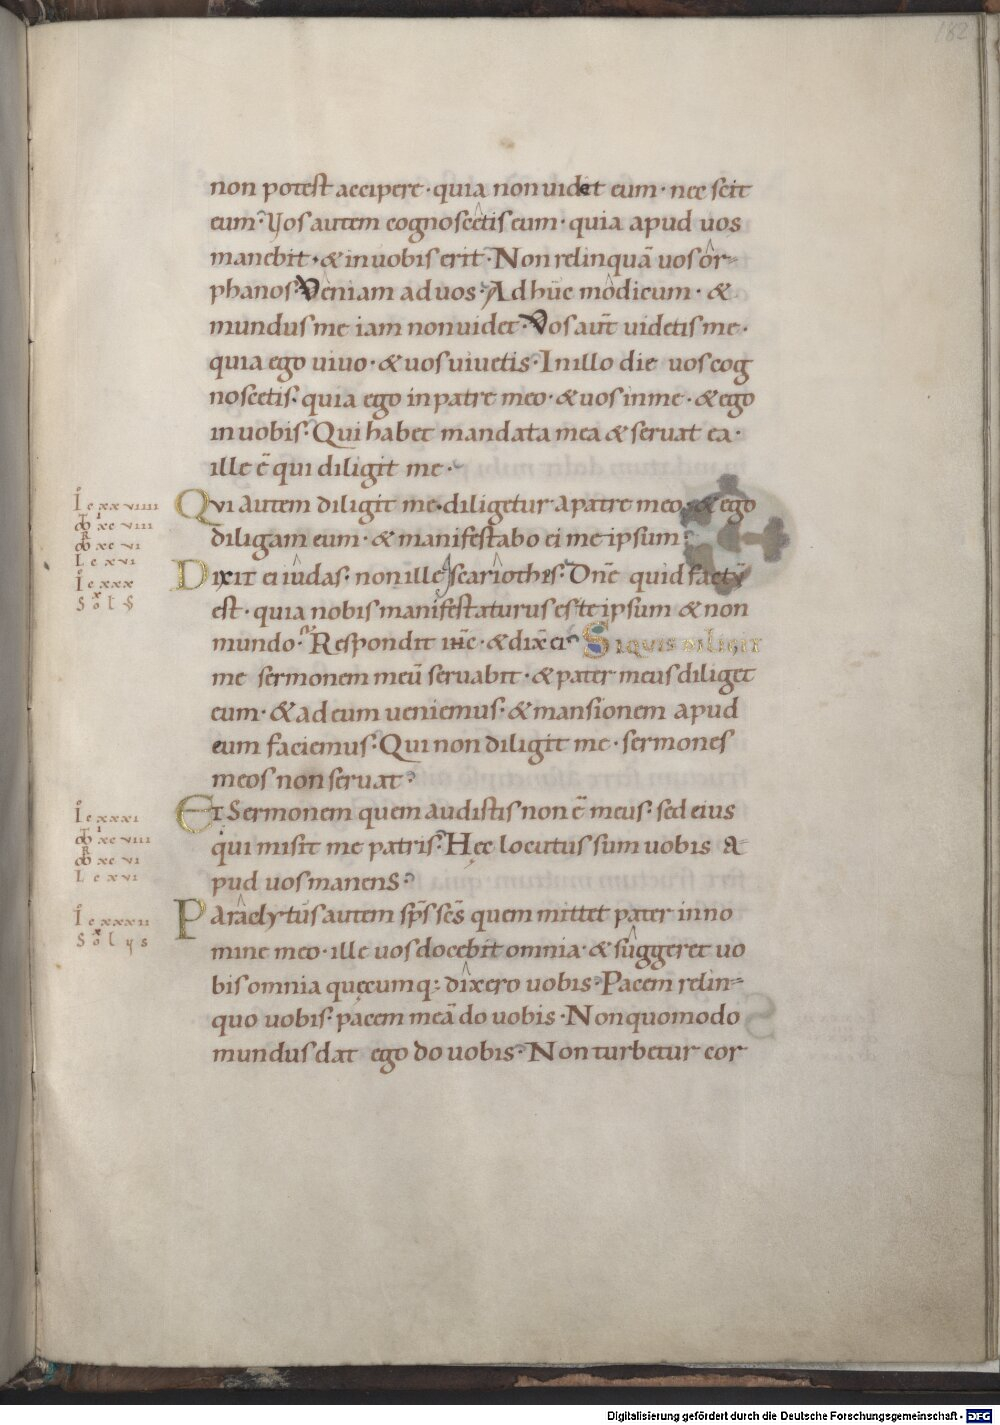 182
non potest accipere · quia non uidet eum · nec scit
eum · Vos autem cognoscetis eum · quia apud uos
manebit · & in uobis erit · Non relinquā uos or-
phanos · Veniam ad uos · Adhuc modicum · &
mundus me iam non uidet · Vos aut̄ uidetis me ·
quia ego uiuo · & uos uiuetis · In illo die uos cog
noscetis · quia ego in patre meo · & uos in me · & ego
in uobis · Qui habet mandata mea & seruat ea ·
ille ē qui diligit me ·
Qui autem diligit me · diligetur a patre meo · & ego
diligam eum · & manifestabo ei me ipsum ·
Dixit ei iudas · non ille scariothis · Dn̄e quid factū
est · quia nobis manifestaturus es te ipsum & non
mundo · Respondit ih̄c · & dix̄ ei · Si quis diligit
me sermonem meū seruabit · & pater meus diliget
eum · & ad eum ueniemus · & mansionem apud
eum faciemus · Qui non diligit me · sermones
meos non seruat ·
Et Sermonem quem audistis non ē meus · sed eius
qui misit me patris · Hęc locutus sum uobis a
pud uos manens ·
Paraclytus autem sp̄s sc̄s quem mittet pater in no
mine meo · ille uos docebit omnia · & suggeret uo
bis omnia quęcumq; dixero uobis · Pacem relin-
quo uobis · pacem meā do uobis · Non quomodo
mundus dat ego do uobis · Non turbetur cor
Io cxxviiii
xcviii
xcvi
L cxvi
Io cxxx
Sol S
Io cxxxi
xcviii
xcvi
L cxvi
Io cxxxii
Sol ys
Digitalisierung gefördert durch die Deutsche Forschungsgemeinschaft - DFG